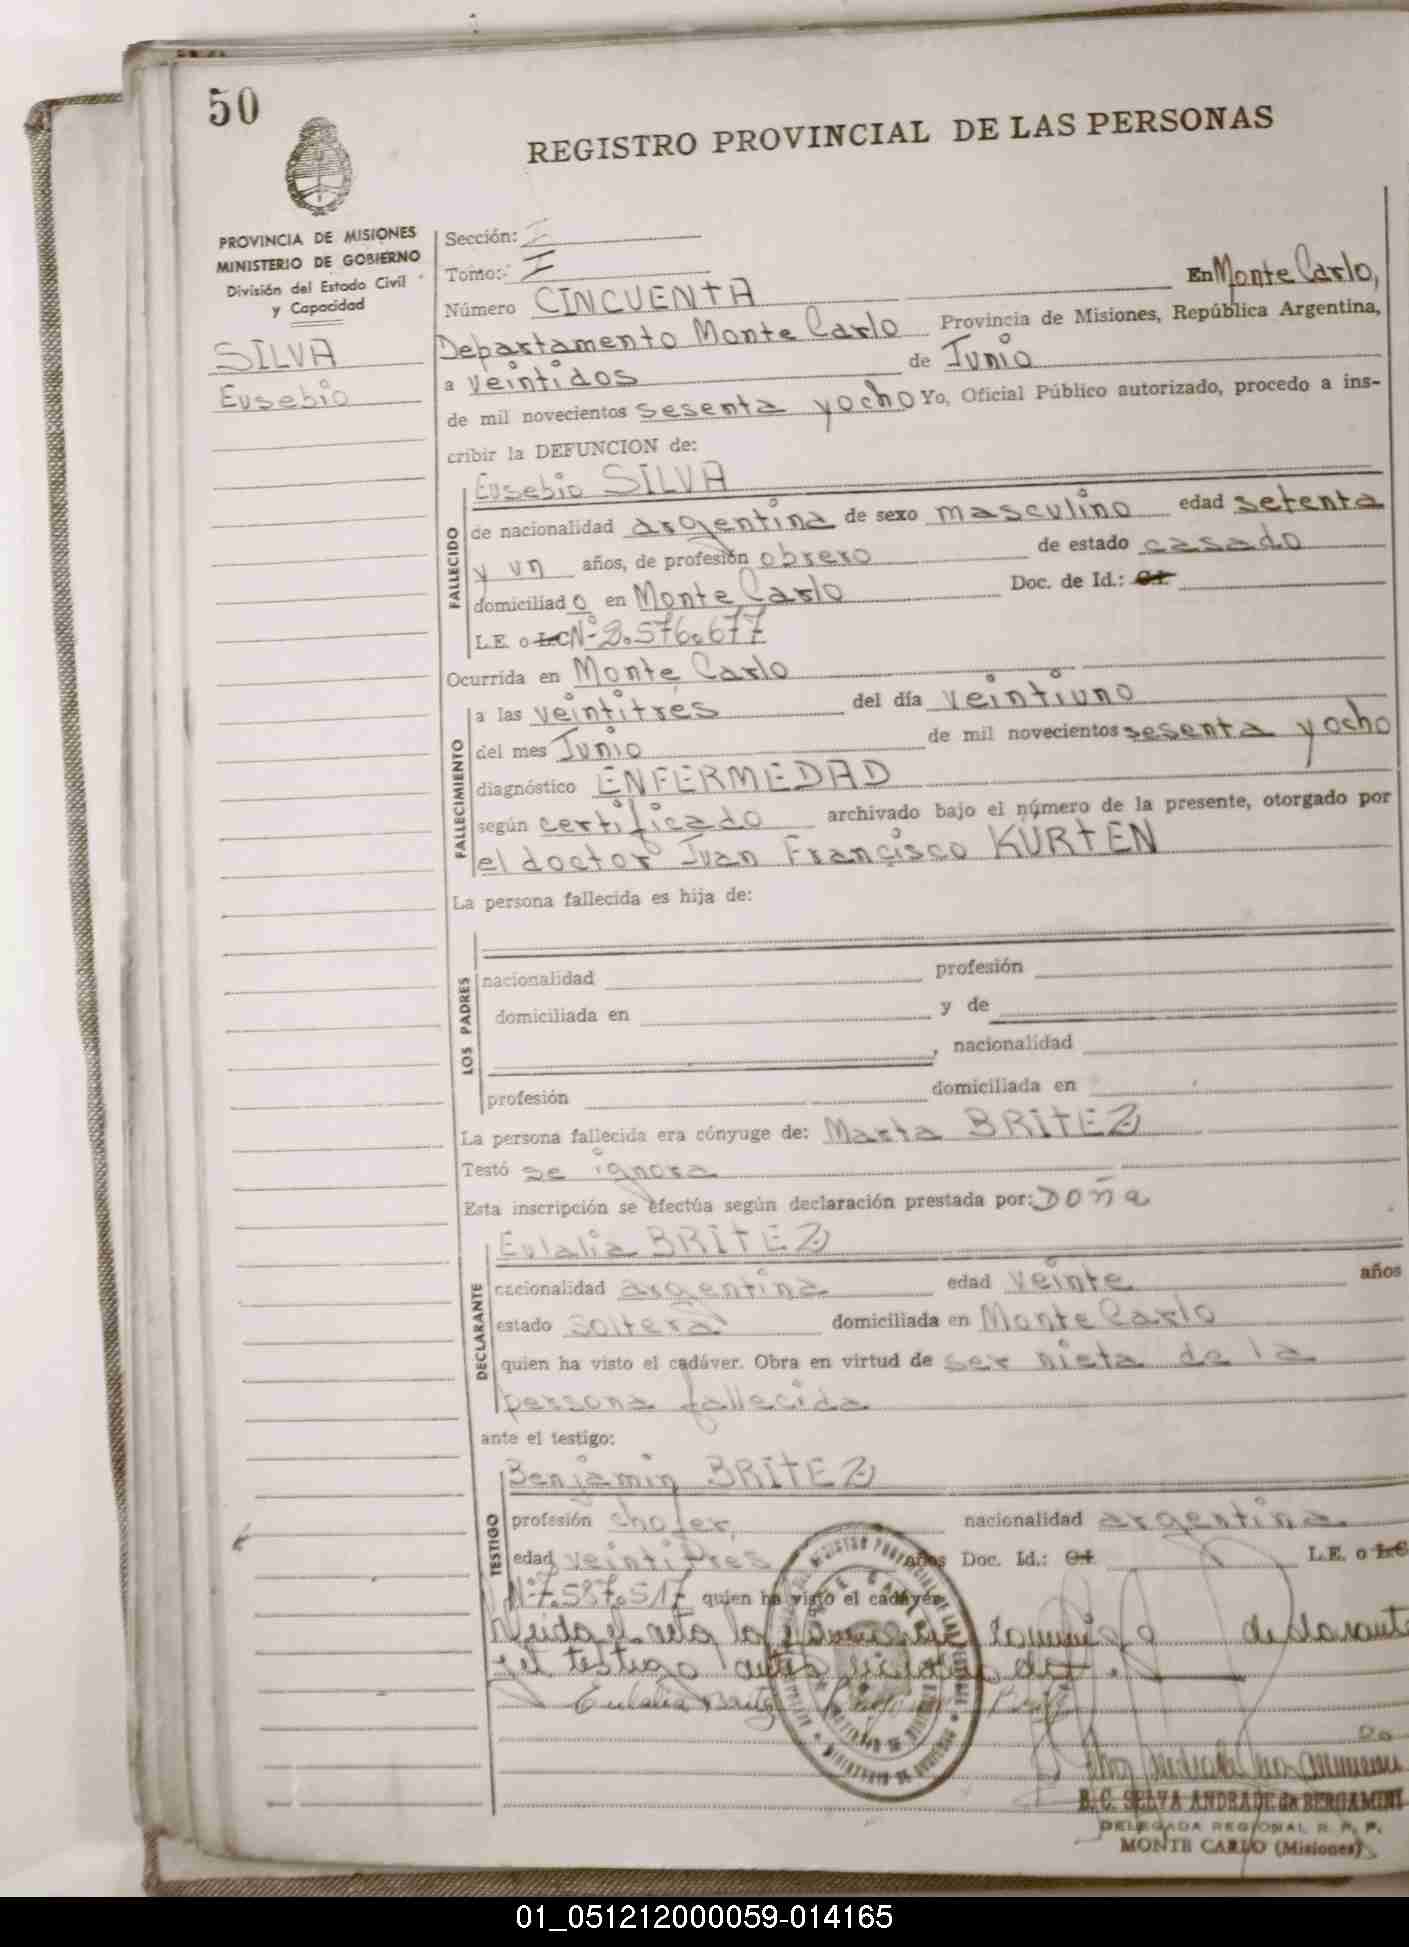 50
REGISTRO PROVINCIAL DE LAS PERSONAS
PROVINCIA DE MISIONES
MINISTERIO DE GOBIERNO
División del Estado Civil
y Capacidad
SILVA
Eusebio
Sección: I
Tomo: I
Número CINCUENTA En Monte Carlo,
Departamento Monte Carlo Provincia de Misiones, República Argentina,
a veintidos de Junio
de mil novecientos sesenta y ocho Yo, Oficial Público autorizado, procedo a ins-
cribir la DEFUNCION de:
Eusebio SILVA
FALLECIDO
de nacionalidad argentina de sexo masculino edad setenta
y un años, de profesión obrero de estado casado
domiciliado en Monte Carlo Doc. de Id.: C.I.
L.E. o L.C. Nº 2.576.677
Ocurrida en Monte Carlo
FALLECIMIENTO
a las veintitres del día veintiuno
del mes Junio de mil novecientos sesenta y ocho
diagnóstico ENFERMEDAD
según certificado archivado bajo el número de la presente, otorgado por
el doctor Juan Francisco KURTEN
La persona fallecida es hija de:
LOS PADRES
nacionalidad profesión
domiciliada en y de
, nacionalidad
profesión domiciliada en
La persona fallecida era cónyuge de: Marta BRITEZ
Testó se ignora
Esta inscripción se efectúa según declaración prestada por: Doña
Eulalia BRITEZ
DECLARANTE
nacionalidad argentina edad veinte años
estado soltera domiciliada en Monte Carlo
quien ha visto el cadáver. Obra en virtud de ser nieta de la
persona fallecida
ante el testigo:
Benjamin BRITEZ
TESTIGO
profesión chofer, nacionalidad argentina
edad veintitres años Doc. Id.: C.I. L.E. o L.C.
Nº 7.587.517 quien ha visto el cadáver
Leida el acta la declarante
y el testigo
Eulalia Britez
B. C. SELVA ANDRADE de BERGAMINI
DELEGADA REGIONAL R. P. P.
MONTE CARLO (Misiones)
01_051212000059-014165